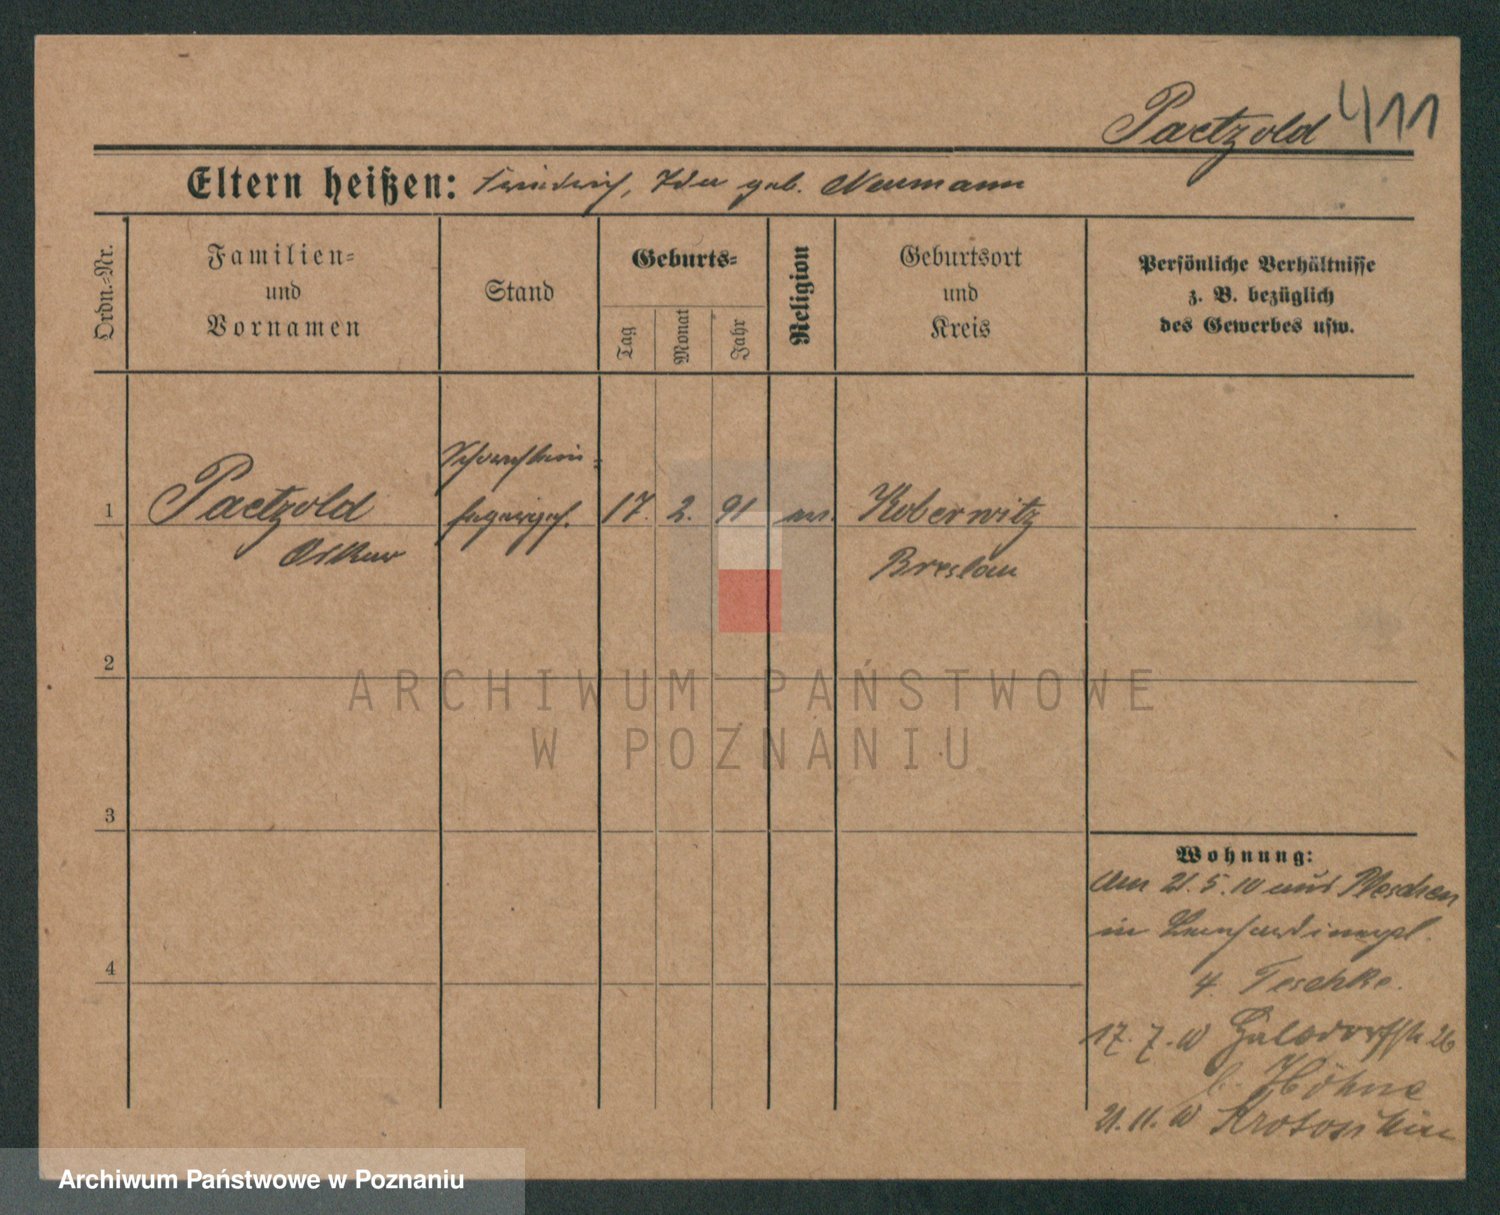 Paetzold 411
Eltern heißen: Friedrich, Ida geb. Neumann
Ordn.-Nr.
Familien-
und
Vornamen
Stand
Geburts-
Tag
Monat
Jahr
Religion
Geburtsort
und
Kreis
Persönliche Verhältnisse
z. B. bezüglich
des Gewerbes usw.
Schornstein-
1 Paetzold fegergeh. 17. 2. 91 ev. Koberwitz
Oskar Breslau
2
3
4
Wohnung:
Am 21.5.10 aus Pleschen
in Bernhardinerpl.
4. Teschke.
17.7.10 26
b. Höhne
21.11.10 Krotoschin
ARCHIWUM PAŃSTWOWE
W POZNANIU
Archiwum Państwowe w Poznaniu